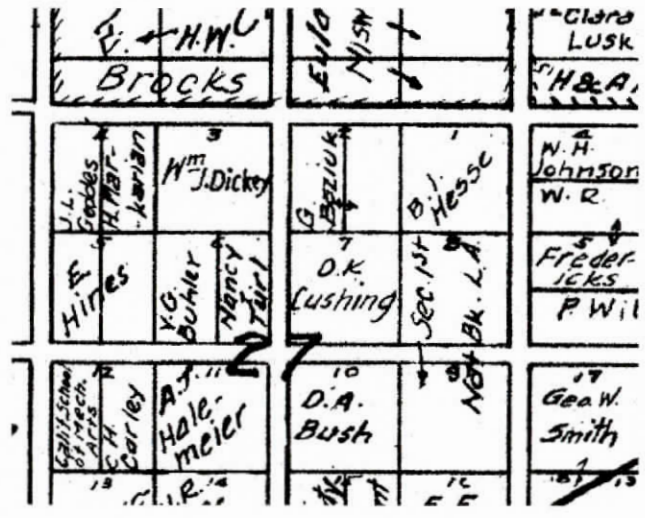 H.W.
Brocks
Clara
Lusk
H & A.
4
J.L.
Geddes
H. Mar-
karian
3
Wm
J. Dickey
2
G
Boziuk
1
B.J.
Hesse
4
W.H.
Johnson
W.R.
E
Hines
6
V.G.
Buhler
Nancy
7
D.K.
Cushing
8
Sec. 1st
Nat Bk. L.A.
5
Freder-
icks
P. Wil
27
12
Calif School
of Mech.
Arts
C.H.
Corley
11
A.J.
Hale-
meier
10
D.A.
Bush
9
17
Geo. W.
Smith
13
J.R.
14